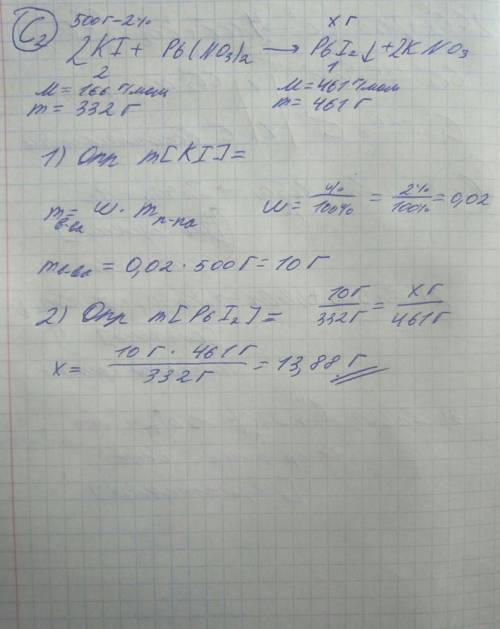 С2
500г-2% x г
2KI + Pb(NO3)2 → PbI2↓ + 2KNO3
2 1
M = 166 г/моль M = 461 г/моль
m = 332 г m = 461 г
1) Опр m[KI]=
m в-ва = ω · m р-ра ω = %/100% = 2%/100% = 0,02
m в-ва = 0,02 · 500г = 10 г
2) Опр m[PbI2]= 10г/332г = xг/461г
x = 10 г · 461 г/332 г = 13,88 г